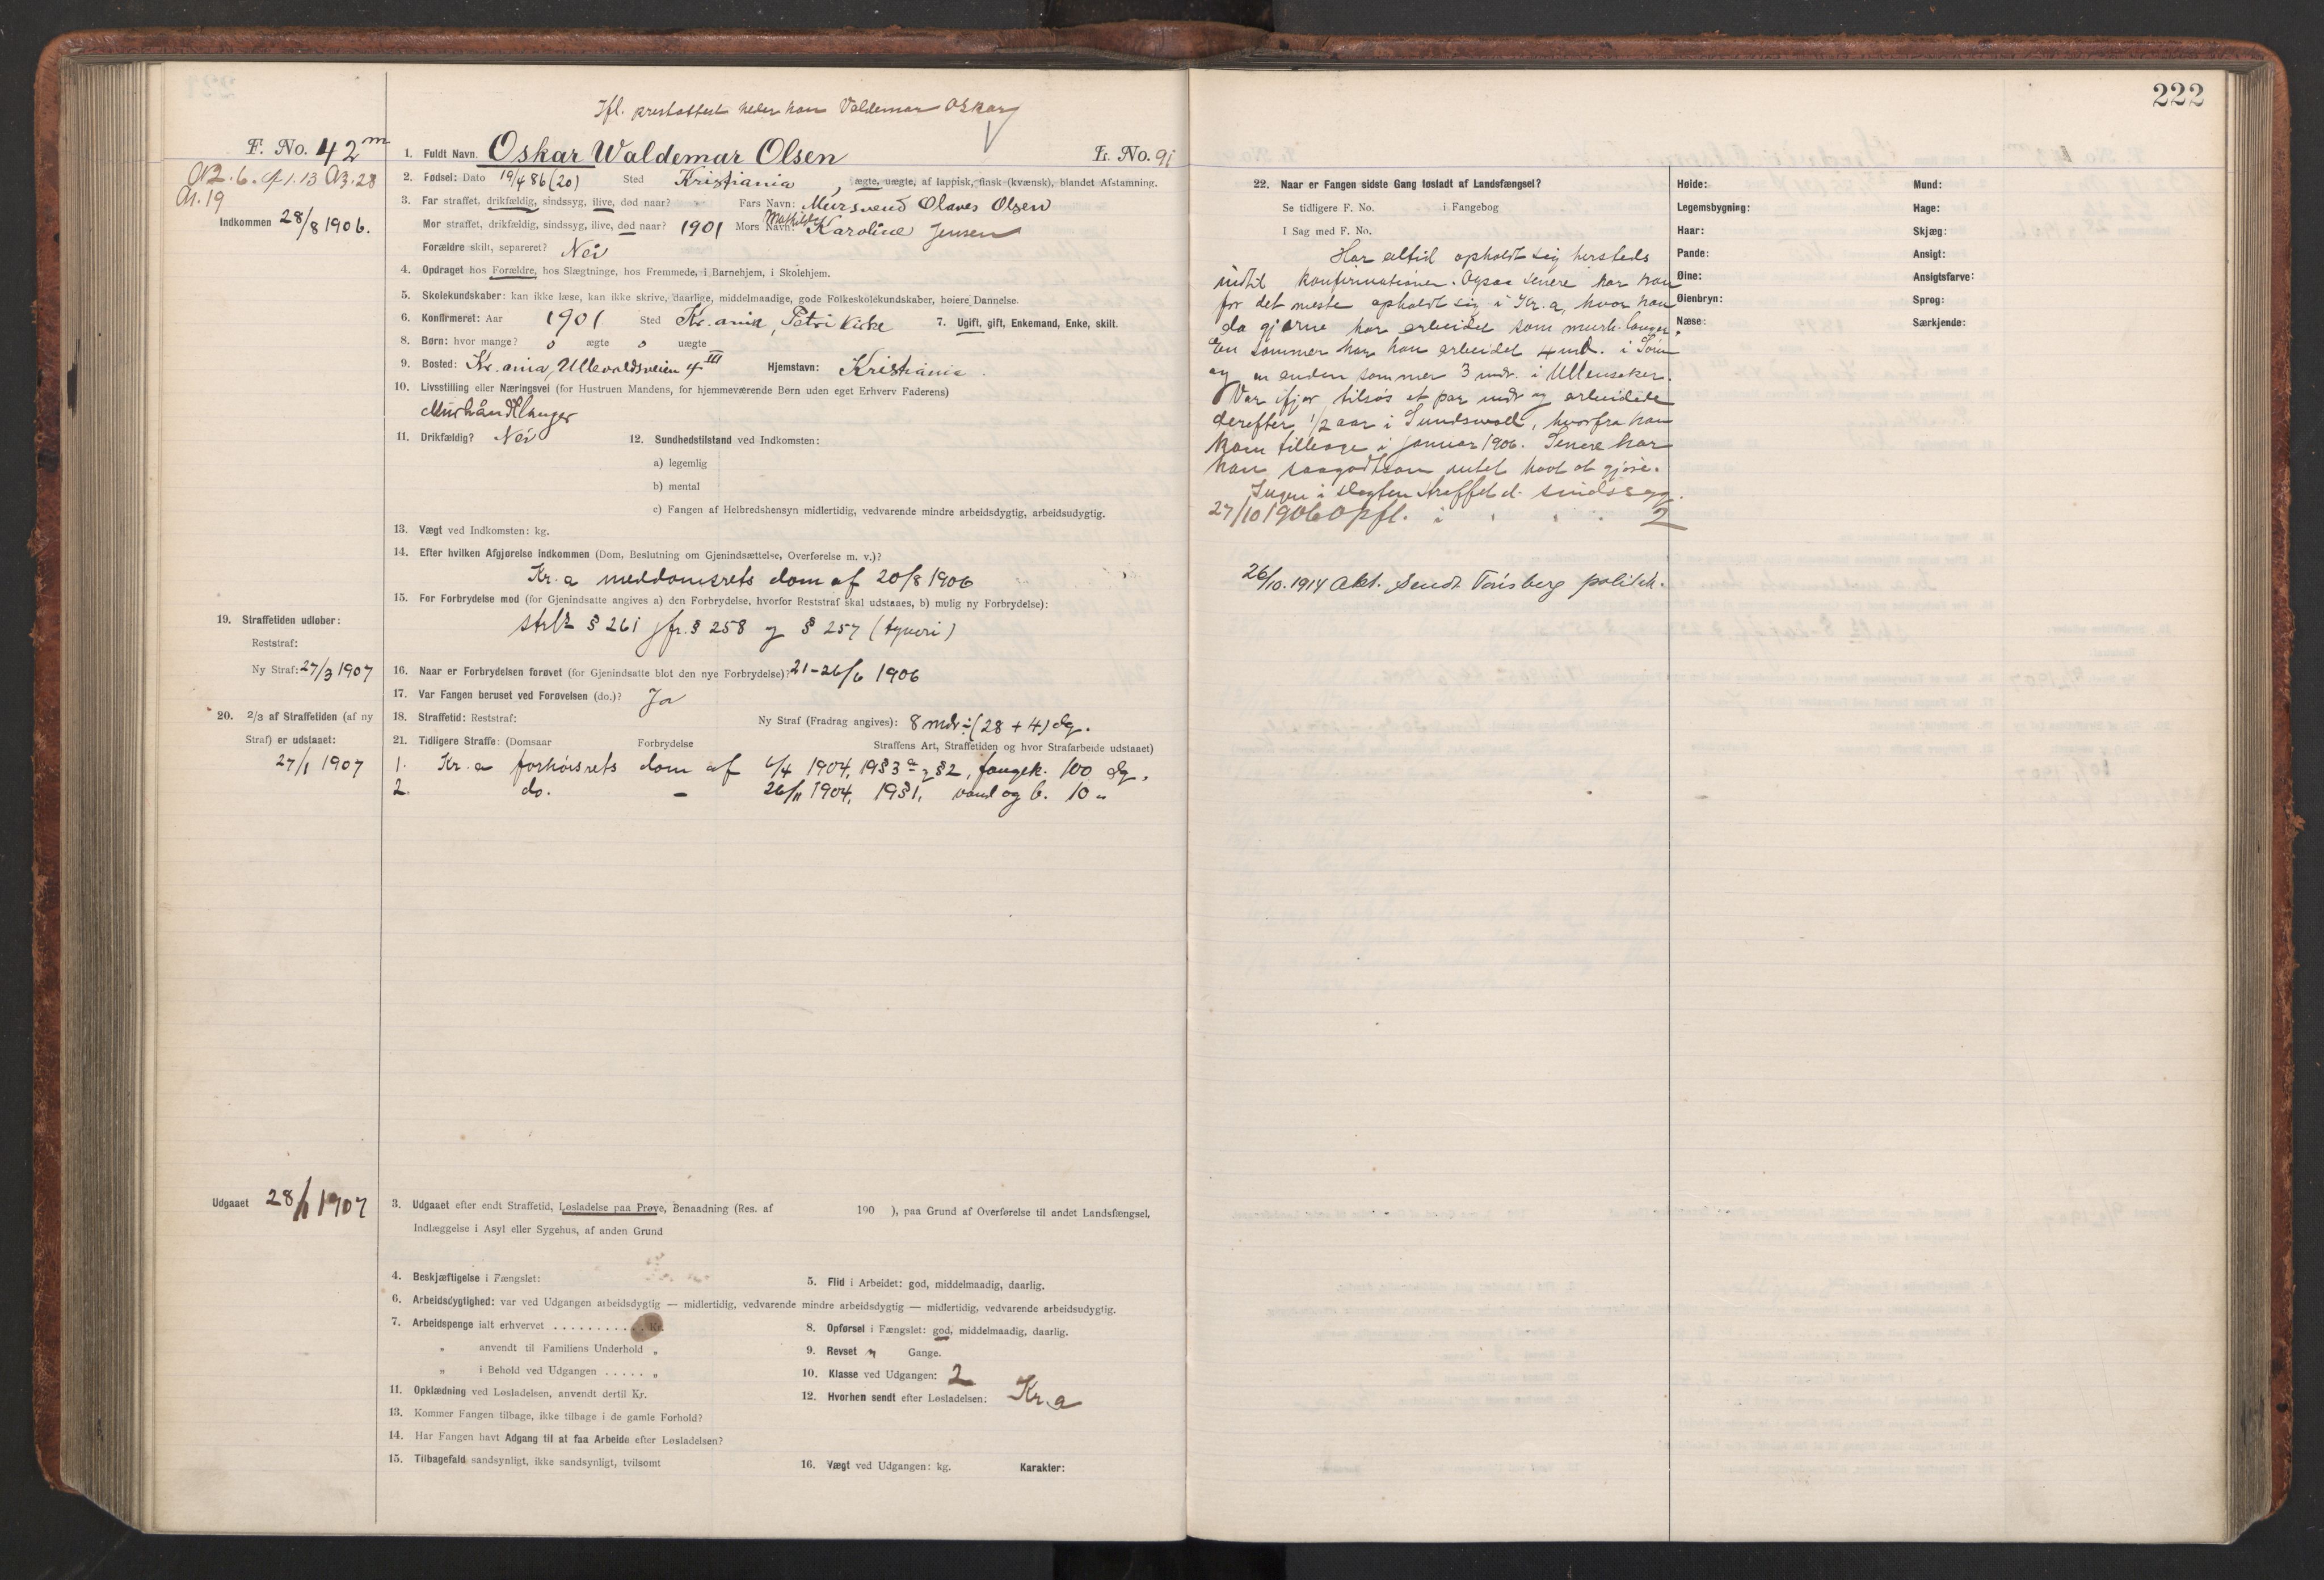 222
Ifl. prestattest heder han Valdemar Oskar
F. No. 42 m
1. Fuldt Navn. Oskar Waldemar Olsen L. No. 91
2. Fødsel: Dato 19/4 86 (20) Sted Kristiania, ægte, uægte, af lappisk, finsk (kvænsk), blandet Afstamning.
Indkommen 28/8 1906.
3. Far straffet, drikfældig, sindssyg, ilive, død naar? Fars Navn: Mursvend Olaves Olsen
Mathilde
Mor straffet, drikfældig, sindssyg, ilive, død naar? 1901 Mors Navn: Karoline Jensen
Forældre skilt, separeret? Nei
4. Opdraget hos Forældre, hos Slægtninge, hos Fremmede, i Barnehjem, i Skolehjem.
5. Skolekundskaber: kan ikke læse, kan ikke skrive, daarlige, middelmaadige, gode Folkeskolekundskaber, høiere Dannelse.
6. Konfirmeret: Aar 1901 Sted Kr.ania, Petri Kirke 7. Ugift, gift, Enkemand, Enke, skilt.
8. Børn: hvor mange? 0 ægte 0 uægte
9. Bosted: Kr.ania, Ullevoldsveien 4 III Hjemstavn: Kristiania.
10. Livsstilling eller Næringsvei (for Hustruen Mandens, for hjemmeværende Børn uden eget Erhverv Faderens)
Murhåndlanger
11. Drikfældig? Nei 12. Sundhedstilstand ved Indkomsten:
a) legemlig
b) mental
c) Fangen af Helbredshensyn midlertidig, vedvarende mindre arbeidsdygtig, arbeidsudygtig.
13. Vægt ved Indkomsten: kg.
14. Efter hvilken Afgjørelse indkommen (Dom, Beslutning om Gjenindsættelse, Overførelse m. v.)?
Kr.a meddomsrets dom af 20/8 1906
15. For Forbrydelse mod (for Gjenindsatte angives a) den Forbrydelse, hvorfor Reststraf skal udstaaes, b) mulig ny Forbrydelse):
strl § 261 jfr. § 258 og § 257 (tyveri)
19. Straffetiden udløber:
Reststraf:
Ny Straf: 27/3 1907
16. Naar er Forbrydelsen forøvet (for Gjenindsatte blot den nye Forbrydelse)? 21-26/6 1906
17. Var Fangen beruset ved Forøvelsen (do.)? Ja
20. 2/3 af Straffetiden (af ny
Straf) er udstaaet:
27/1 1907
18. Straffetid: Reststraf: Ny Straf (Fradrag angives): 8 mdr ÷ (28 + 4) dg.
21. Tidligere Straffe: (Domsaar Forbrydelse Straffens Art, Straffetiden og hvor Strafarbeide udstaaet)
1. Kr.a forhørsrets dom af 6/4 1904, 19§3 a og §2, fangsk. 100 dg.
2. do. - 26/11 1904, 19§1, vand og b. 10 "
Udgaaet 28/1 1907
3. Udgaaet efter endt Straffetid, Løsladelse paa Prøve, Benaadning (Res. af 190 ), paa Grund af Overførelse til andet Landsfængsel,
Indlæggelse i Asyl eller Sygehus, af anden Grund
4. Beskjæftigelse i Fængslet: 5. Flid i Arbeidet: god, middelmaadig, daarlig.
6. Arbeidsdygtighed: var ved Udgangen arbeidsdygtig — midlertidig, vedvarende mindre arbeidsdygtig — midlertidig, vedvarende arbeidsudygtig.
7. Arbeidspenge ialt erhvervet . . . . . . . . . . . Kr. 8. Opførsel i Fængslet: god, middelmaadig, daarlig.
„ anvendt til Familiens Underhold „ 9. Revset Gange.
„ i Behold ved Udgangen . . . . . „ 10. Klasse ved Udgangen: 2
11. Opklædning ved Løsladelsen, anvendt dertil Kr. 12. Hvorhen sendt efter Løsladelsen: Kr.a
13. Kommer Fangen tilbage, ikke tilbage i de gamle Forhold?
14. Har Fangen havt Adgang til at faa Arbeide efter Løsladelsen?
15. Tilbagefald sandsynligt, ikke sandsynligt, tvilsomt 16. Vægt ved Udgangen: kg. Karakter:
22. Naar er Fangen sidste Gang løsladt af Landsfængsel?
Se tidligere F. No. i Fangebog
I Sag med F. No.
Har altid opholdt sig hersteds
indtil konfirmationen. Ogsaa senere har han
for det meste opholdt sig i Kr.a, hvor han
da gjerne har arbeidet som murh.langer.
En sommer har han arbeidet 4 md. i
og en anden sommer 3 mdr. i Ullensaker.
Var ifjor tilsøs et par mdr og arbeidede
derefter 1/2 aar i Sundsvall, hvorfra han
kom tilbage i januar 1906. Senere har
han saagodtsom intet havt at gjøre.
Ingen i slægten straffet el. sindssyg.
27/10 1906 Opfl. i 2
26/10.1914 Akt. sendt Tønsberg politik.
Høide: Mund:
Legemsbygning: Hage:
Haar: Skjæg:
Pande: Ansigt:
Øine: Ansigtsfarve:
Øienbryn: Sprog:
Næse: Særkjende: